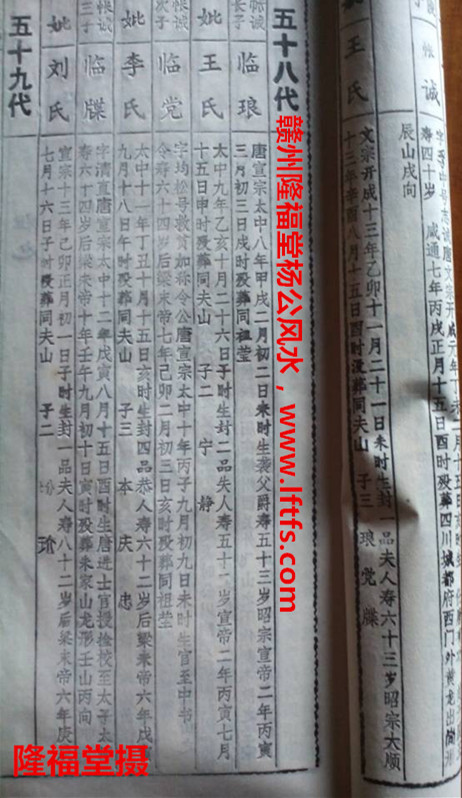 诚
寿四十岁 咸通七年丙戌正月十五日酉时殁葬四川城都府西门外黄龙出
辰山戌向
妣王氏
文宗开成十三年乙卯十一月二十一日未时生封一品夫人寿六十三岁昭宗大顺
十三年辛酉八月十五日酉时没葬同夫山 子三 琅党牒
五十八代
帐诚长子
临琅
唐宣宗太中八年甲戌二月初二日未时生袭父爵寿五十三岁昭宗宣帝二年丙寅
三月初三日戌时殁葬同祖茔
妣王氏
太中九年乙亥十月二十六日子时生封二品夫人寿五十二岁宣帝二年丙寅七月
十五日申时殁葬同夫山 子二 宁静
帐诚次子
临党
字均松号救贫加称令公唐宣宗太中十年丙子九月初九日未时生官至中书
令寿六十四岁后梁末帝七年己卯二月初三日亥时殁葬同祖茔
妣李氏
太中十一年丁丑十月十五日亥时生封四品恭人寿六十二岁后梁末帝六年戊
九月十八日午时殁葬同夫山 子三 本庆忠
帐诚三子
临牒
字清直唐宣宗太中十二年戊寅八月十五日酉时生唐进士官授捡校至太子太
寿六十四岁后梁末帝十年壬午九月初十日寅时殁葬朱家山龙形壬山丙向
妣刘氏
宣宗十三年己卯正月初一日子时生封一品夫人寿八十二岁后梁末帝六年庚
七月十六日子时殁葬同夫山 子二
五十九代
赣州隆福堂杨公风水，www.lftfs.com
隆福堂摄